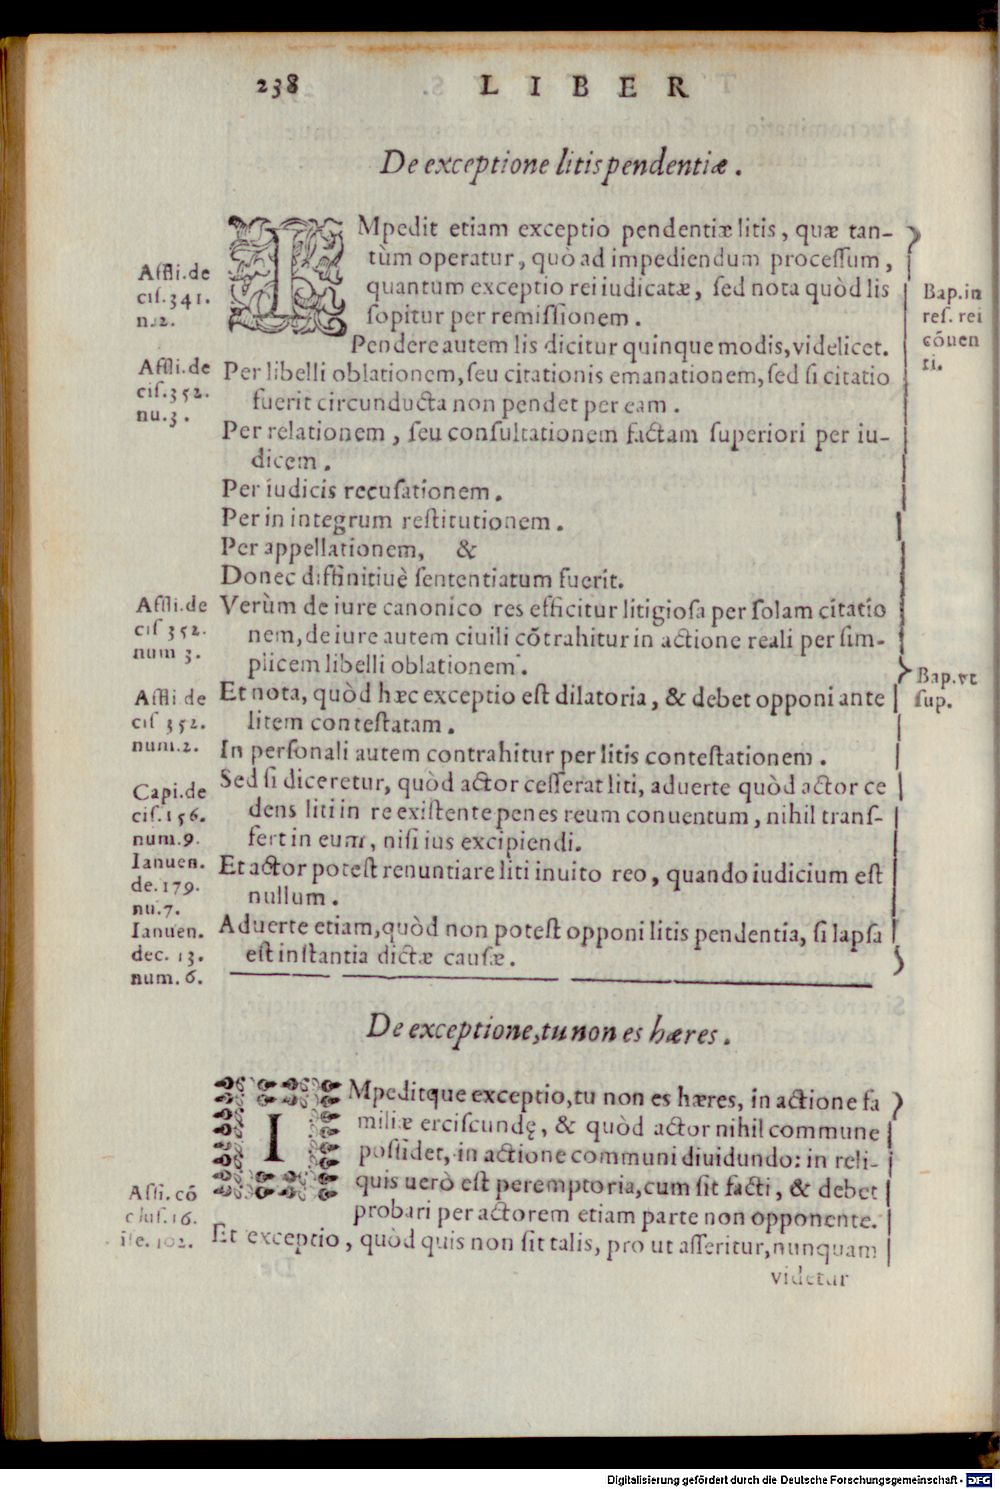 238 LIBER
De exceptione litis pendentiæ.
IMpedit etiam exceptio pendentiæ litis, quæ tan-
tùm operatur, quò ad impediendum processum,
quantum exceptio rei iudicatæ, sed nota quòd lis
sopitur per remissionem.
Pendere autem lis dicitur quinque modis, videlicet.
Per libelli oblationem, seu citationis emanationem, sed si citatio
fuerit circunducta non pendet per eam.
Per relationem, seu consultationem factam superiori per iu-
dicem.
Per iudicis recusationem.
Per in integrum restitutionem.
Per appellationem, &
Donec diffinitiuè sententiatum fuerit.
Verùm de iure canonico res efficitur litigiosa per solam citatio
nem, de iure autem ciuili cõtrahitur in actione reali per sim-
plicem libelli oblationem.
Et nota, quòd hæc exceptio est dilatoria, & debet opponi ante
litem contestatam.
In personali autem contrahitur per litis contestationem.
Sed si diceretur, quòd actor cesserat liti, aduerte quòd actor ce
dens liti in re existente penes reum conuentum, nihil trans-
fert in eum, nisi ius excipiendi.
Et actor potest renuntiare liti inuito reo, quando iudicium est
nullum.
Aduerte etiam, quòd non potest opponi litis pendentia, si lapsa
est instantia dictæ causæ.
Affli. de
cis. 341.
n. 2.
Affli. de
cis. 352.
nu. 3.
Affli. de
cis 352.
num 3.
Affli de
cis 352.
num. 2.
Capi. de
cis. 156.
num. 9.
Ianuen.
de. 179.
nu. 7.
Ianuen.
dec. 13.
num. 6.
Bap. in
res. rei
cõuen
ti.
Bap. vt
sup.
De exceptione, tu non es hæres.
IMpeditque exceptio, tu non es hæres, in actione fa
miliæ erciscundę, & quòd actor nihil commune
possidet, in actione communi diuidundo: in reli-
quis uerò est peremptoria, cum sit facti, & debet
probari per actorem etiam parte non opponente.
Et exceptio, quòd quis non sit talis, pro ut asseritur, nunquam
videtur
Affi. cõ
clus. 16.
102.
Digitalisierung gefördert durch die Deutsche Forschungsgemeinschaft - DFG